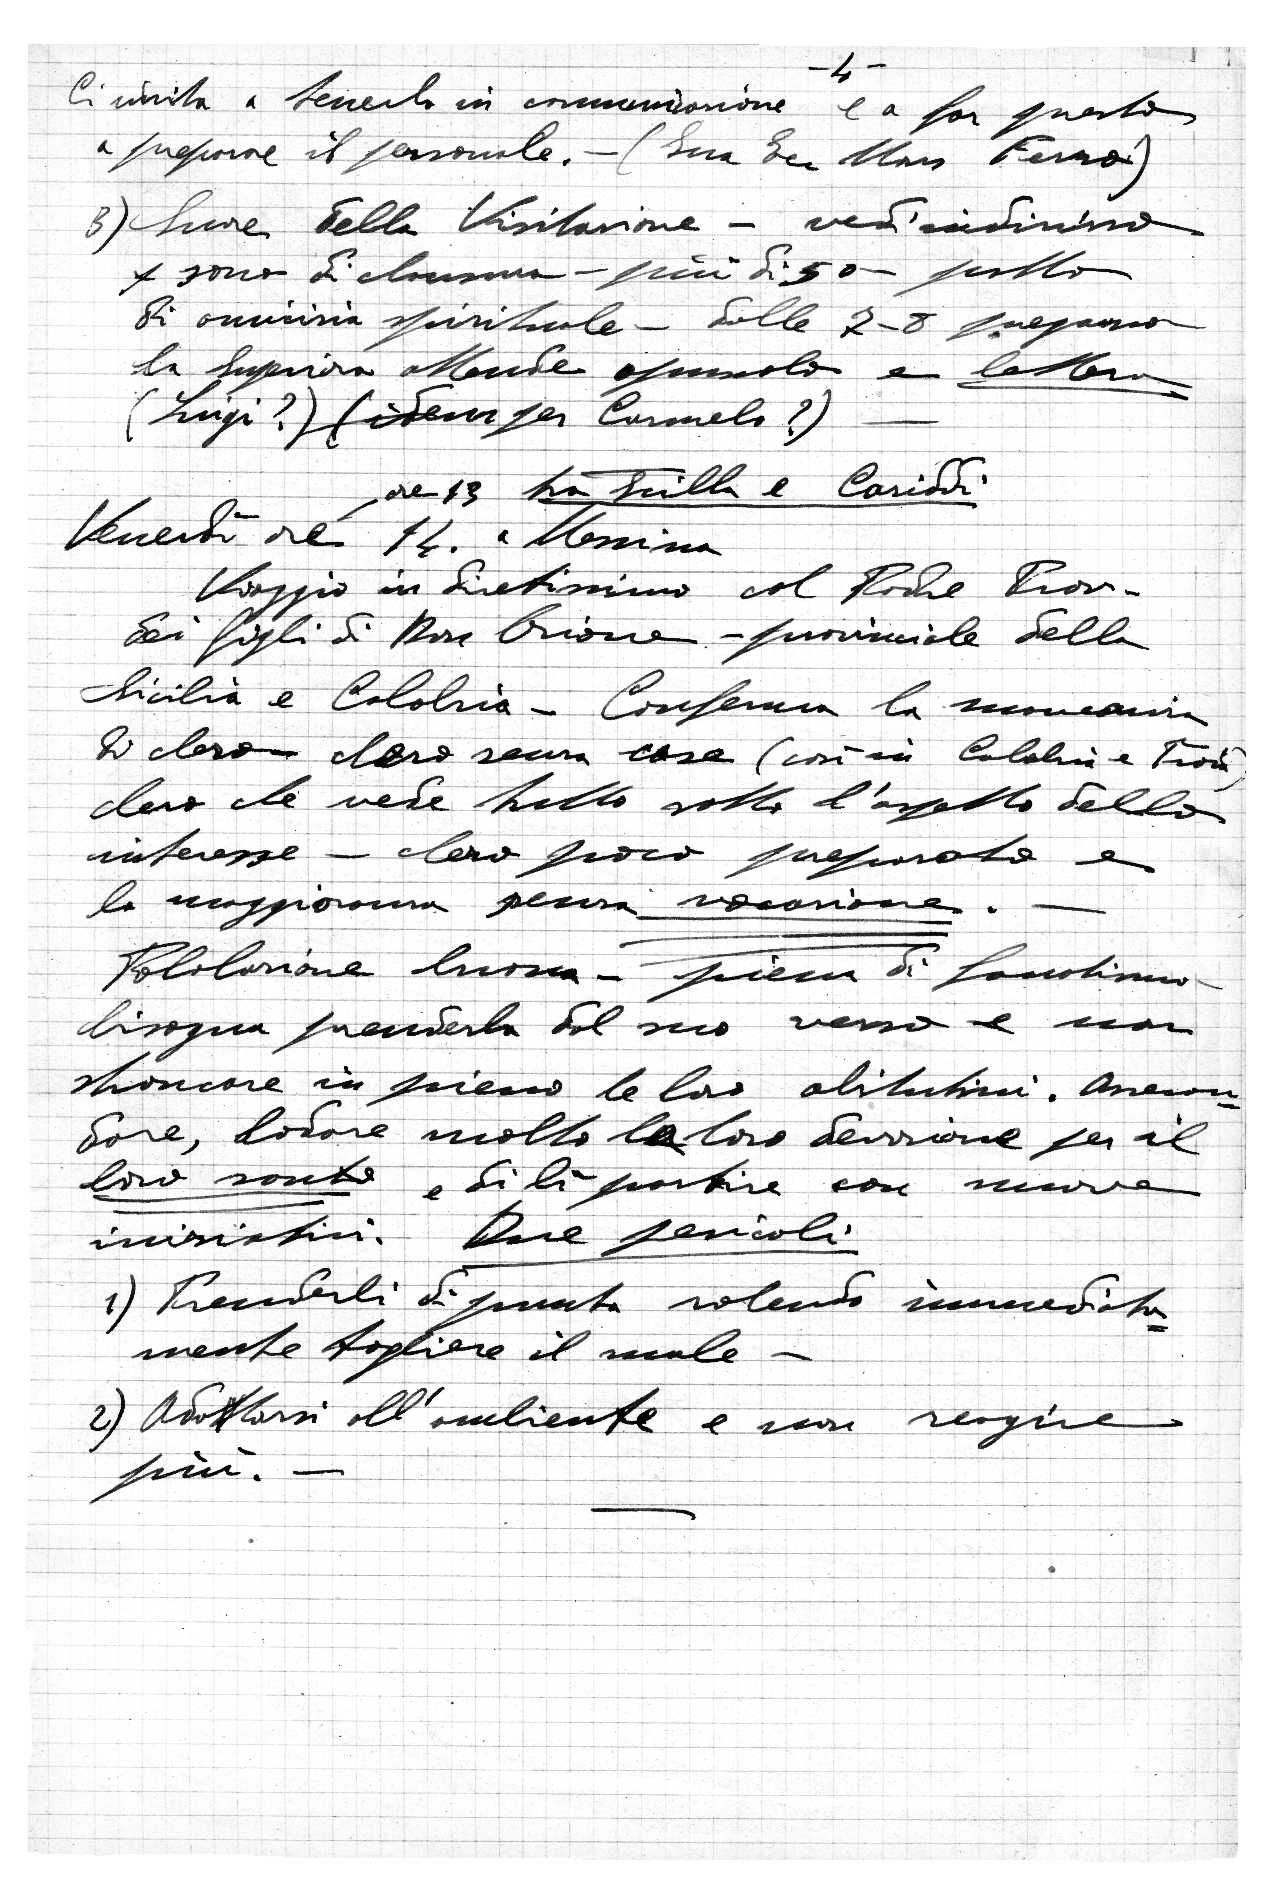 -4-
Ci invita a tenerla in comunicazione e a far presto
a preparare il personale. - (Sua Ecc Mons Ferro)
B) Suore della Visitazione - vedi indirizzo
x sono di clausura - più di 50 - patto
di amicizia spirituale - dalle 7-8 pregano
la Superiora attende opuscolo e lettera
(Luigi?) (idem per Carmelo?) —
ore 13 tra Scilla e Cariddi
Venerdì ore 14. a Messina
Viaggio in direttissimo col Padre Prov-
dei figli di Don Orione - provinciale della
Sicilia e Calabria - Conferma la mancanza
di clero - clero senza case (così in Calabria e
clero che vede tutto sotto l'aspetto dello
interesse - clero poco preparato e
la maggioranza senza vocazione. —
Pololazione buona - piena di fanatismo -
bisogna prenderla dal suo verso e non
stroncare in pieno le loro abitutini. Assecon=
dare, lodare molto la loro devozione per il
loro santo e di lì partire con nuove
iniziative. Due pericoli
1) Prenderli di punta volendo immediata=
mente togliere il male -
2) Adattarsi all'ambiente e non reagire
più. —